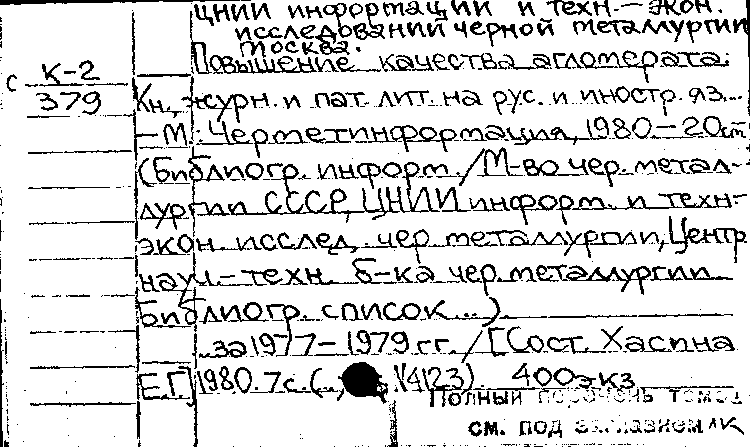 ЦНИИ информации и техн.-экон.
исследований черной металлургии
Москва.
Повышение качества агломерата:
с К-2
379
Кн., журн. и пат. лит. на рус. и иностр. яз...
-М.: Черметинформация, 1980.-20см
(Библиогр. информ./М-во чер. метал-
лургии СССР, ЦНИИ информ. и техн.-
экон. исслед. чер. металлургии, Центр.
науч.-техн. б-ка чер. металлургии.
Библиогр. список...).
..за 1977-1979 гг./[Сост. Хасина
Е.Г.] 1980. 7с. (.., 14123). 400экз.
Полный перечень томов
см. под заглавием